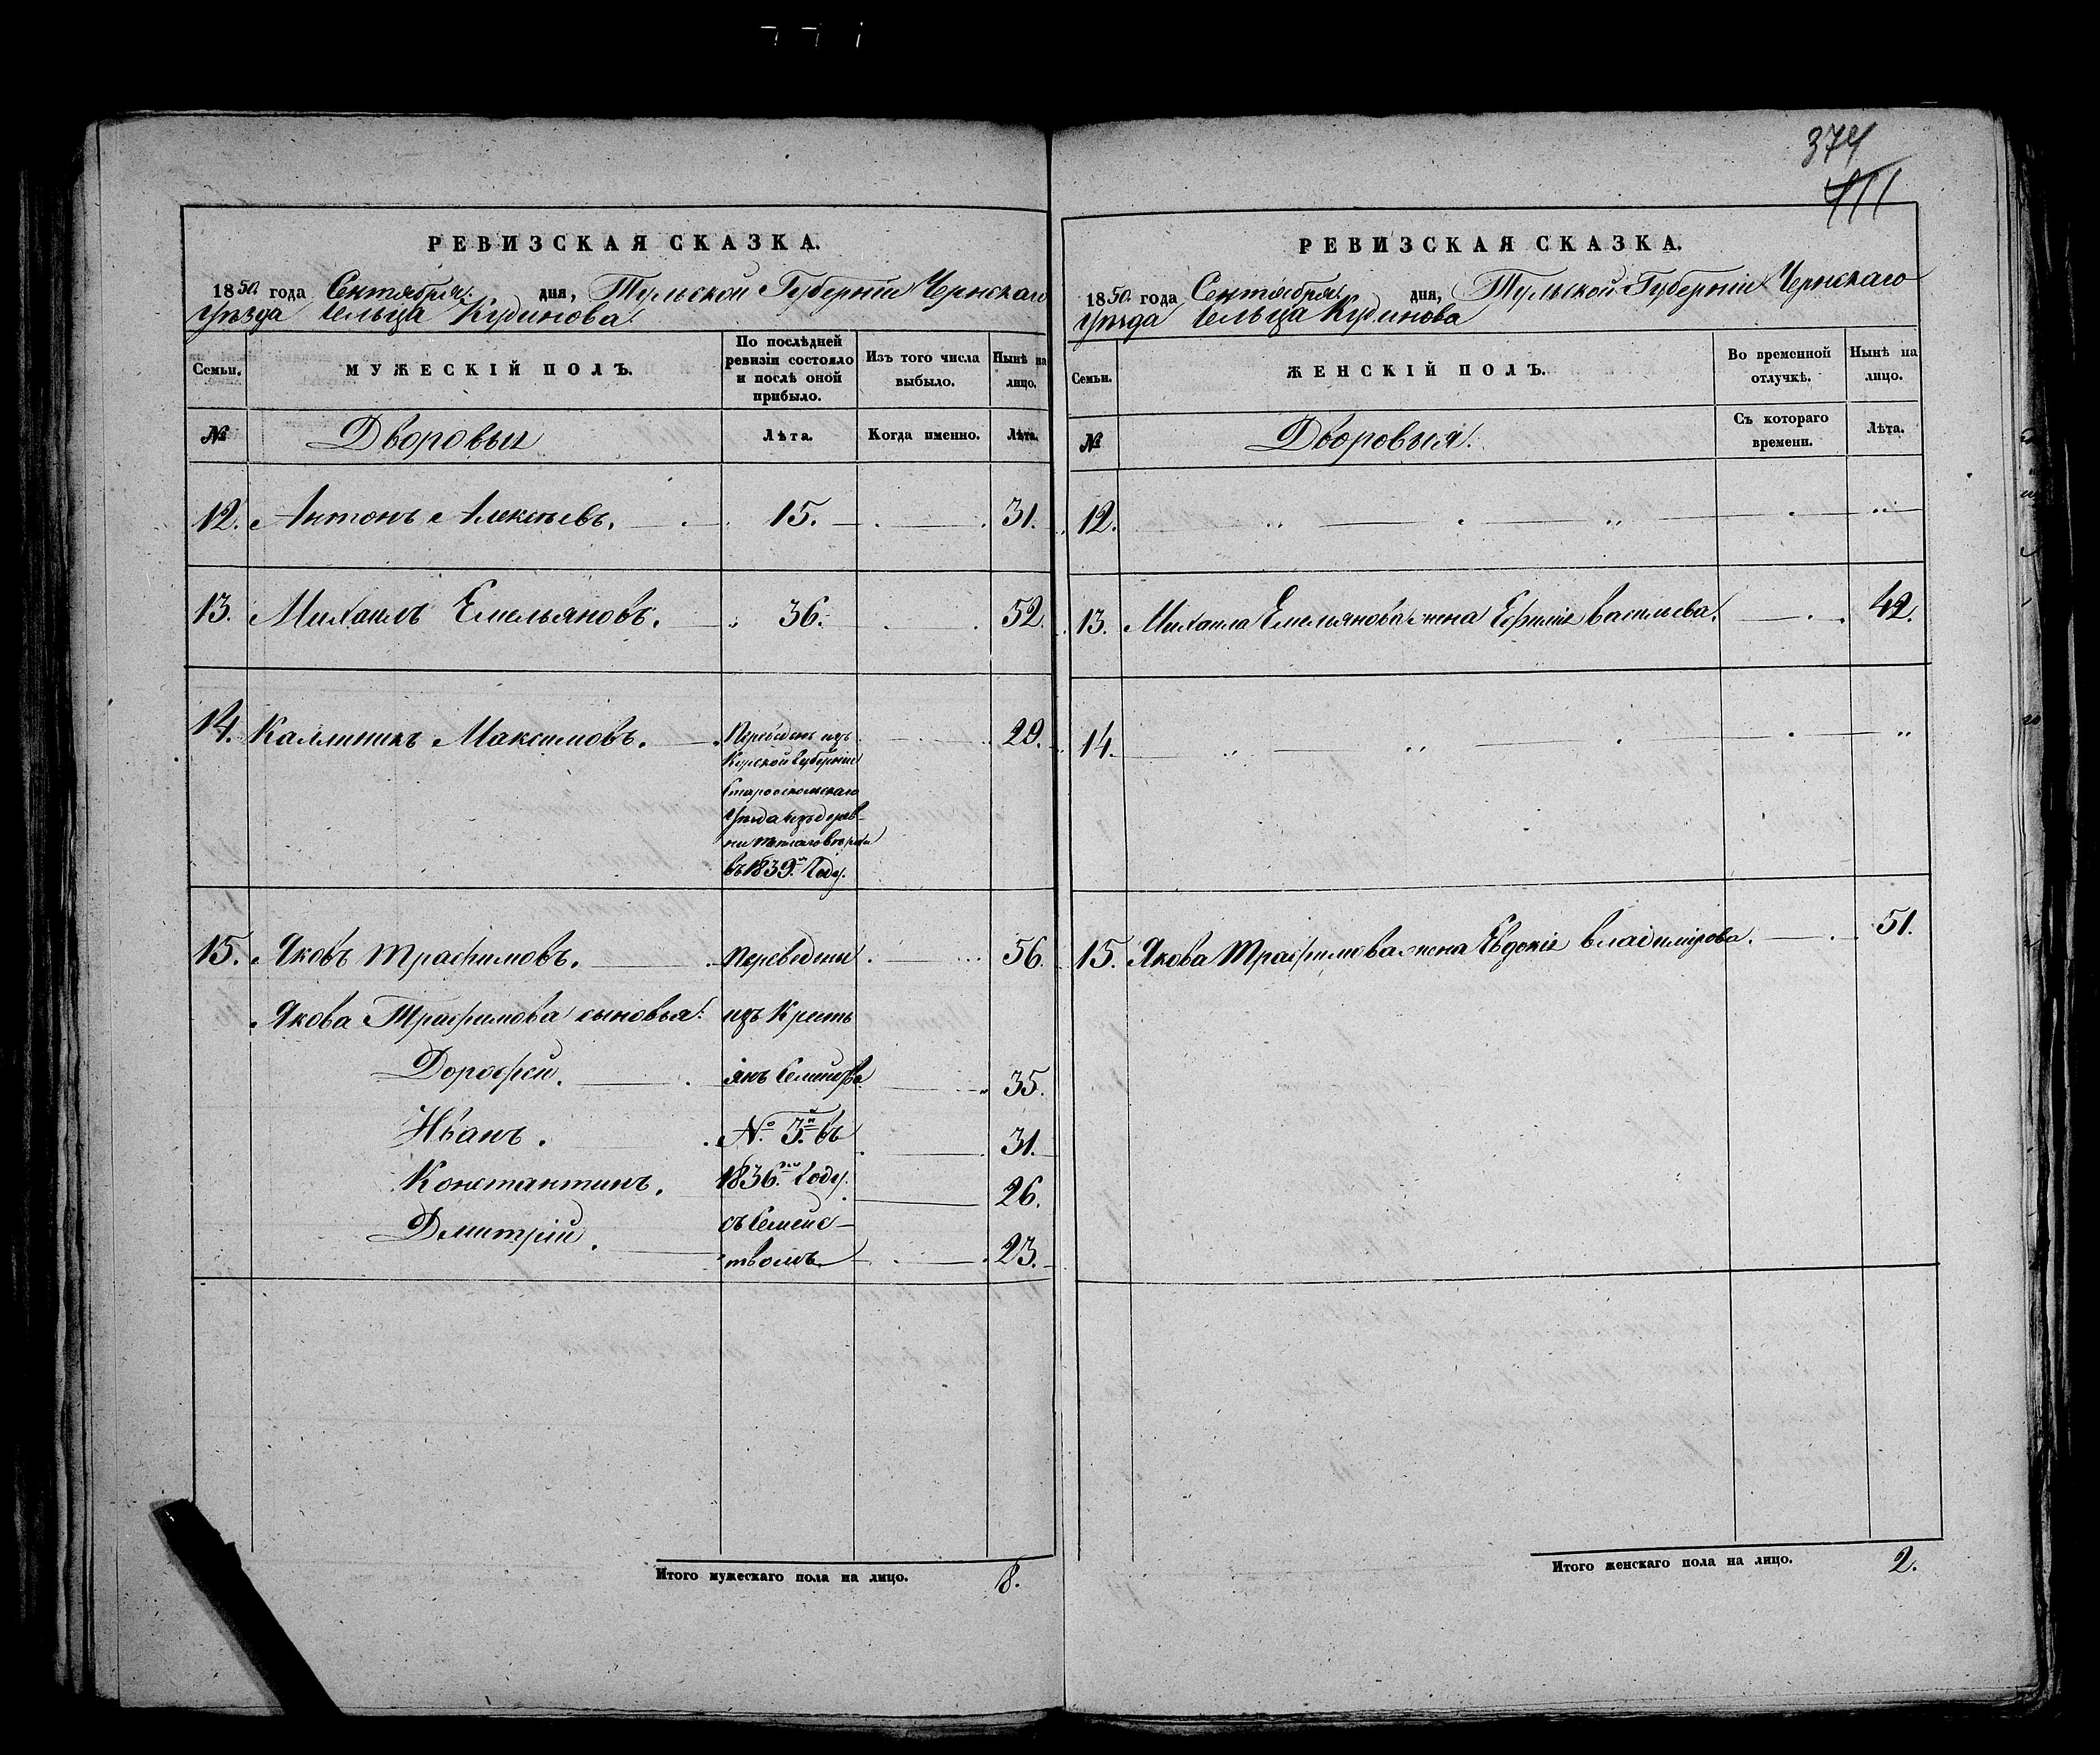 374
411
РЕВИЗСКАЯ СКАЗКА.
1850 года Сентября дня, Тульской Губерніи Чернскаго
Уѣзда сельца Кудинова.
Семьи.
МУЖЕСКІЙ ПОЛЪ.
По послѣдней ревизіи состояло и послѣ оной прибыло.
Изъ того числа выбыло.
Нынѣ на лицо.
№
Дворовыи
Лѣта.
Когда именно.
Лѣта.
12. Антонъ Алексѣевъ. 15. 31.
13. Михаилъ Емельяновъ. 36. 52.
14. Каллиникъ Максимовъ. Переведенъ изъ 29.
Курской губерніи
Старооскольскаго
Уѣзда изъ дерев-
ни
въ 1839м Году.
15. Яковъ Трафимовъ. Переведены 56.
Якова Трафимова сыновья: изъ Кресть
Дорофей. янъ Семейства 35.
Иванъ. № 3й въ 31.
Константинъ. 1836м Году. 26.
Дмитрій. съ Семейс-
твомъ 23.
Итого мужескаго пола на лицо. 8.
РЕВИЗСКАЯ СКАЗКА.
1850 года Сентября дня, Тульской Губерніи Чернскаго
Уѣзда сельца Кудинова
Семьи.
ЖЕНСКІЙ ПОЛЪ.
Во временной отлучкѣ.
Нынѣ на лицо.
№
Дворовыя.
Съ котораго времени.
Лѣта.
12. „ „ „
13. Михаила Емельянова жена Ефимія васильева. 42.
14. „ „ „
15. Якова Трафимова жена Евдокія владимірова. 51.
Итого женскаго пола на лицо. 2.